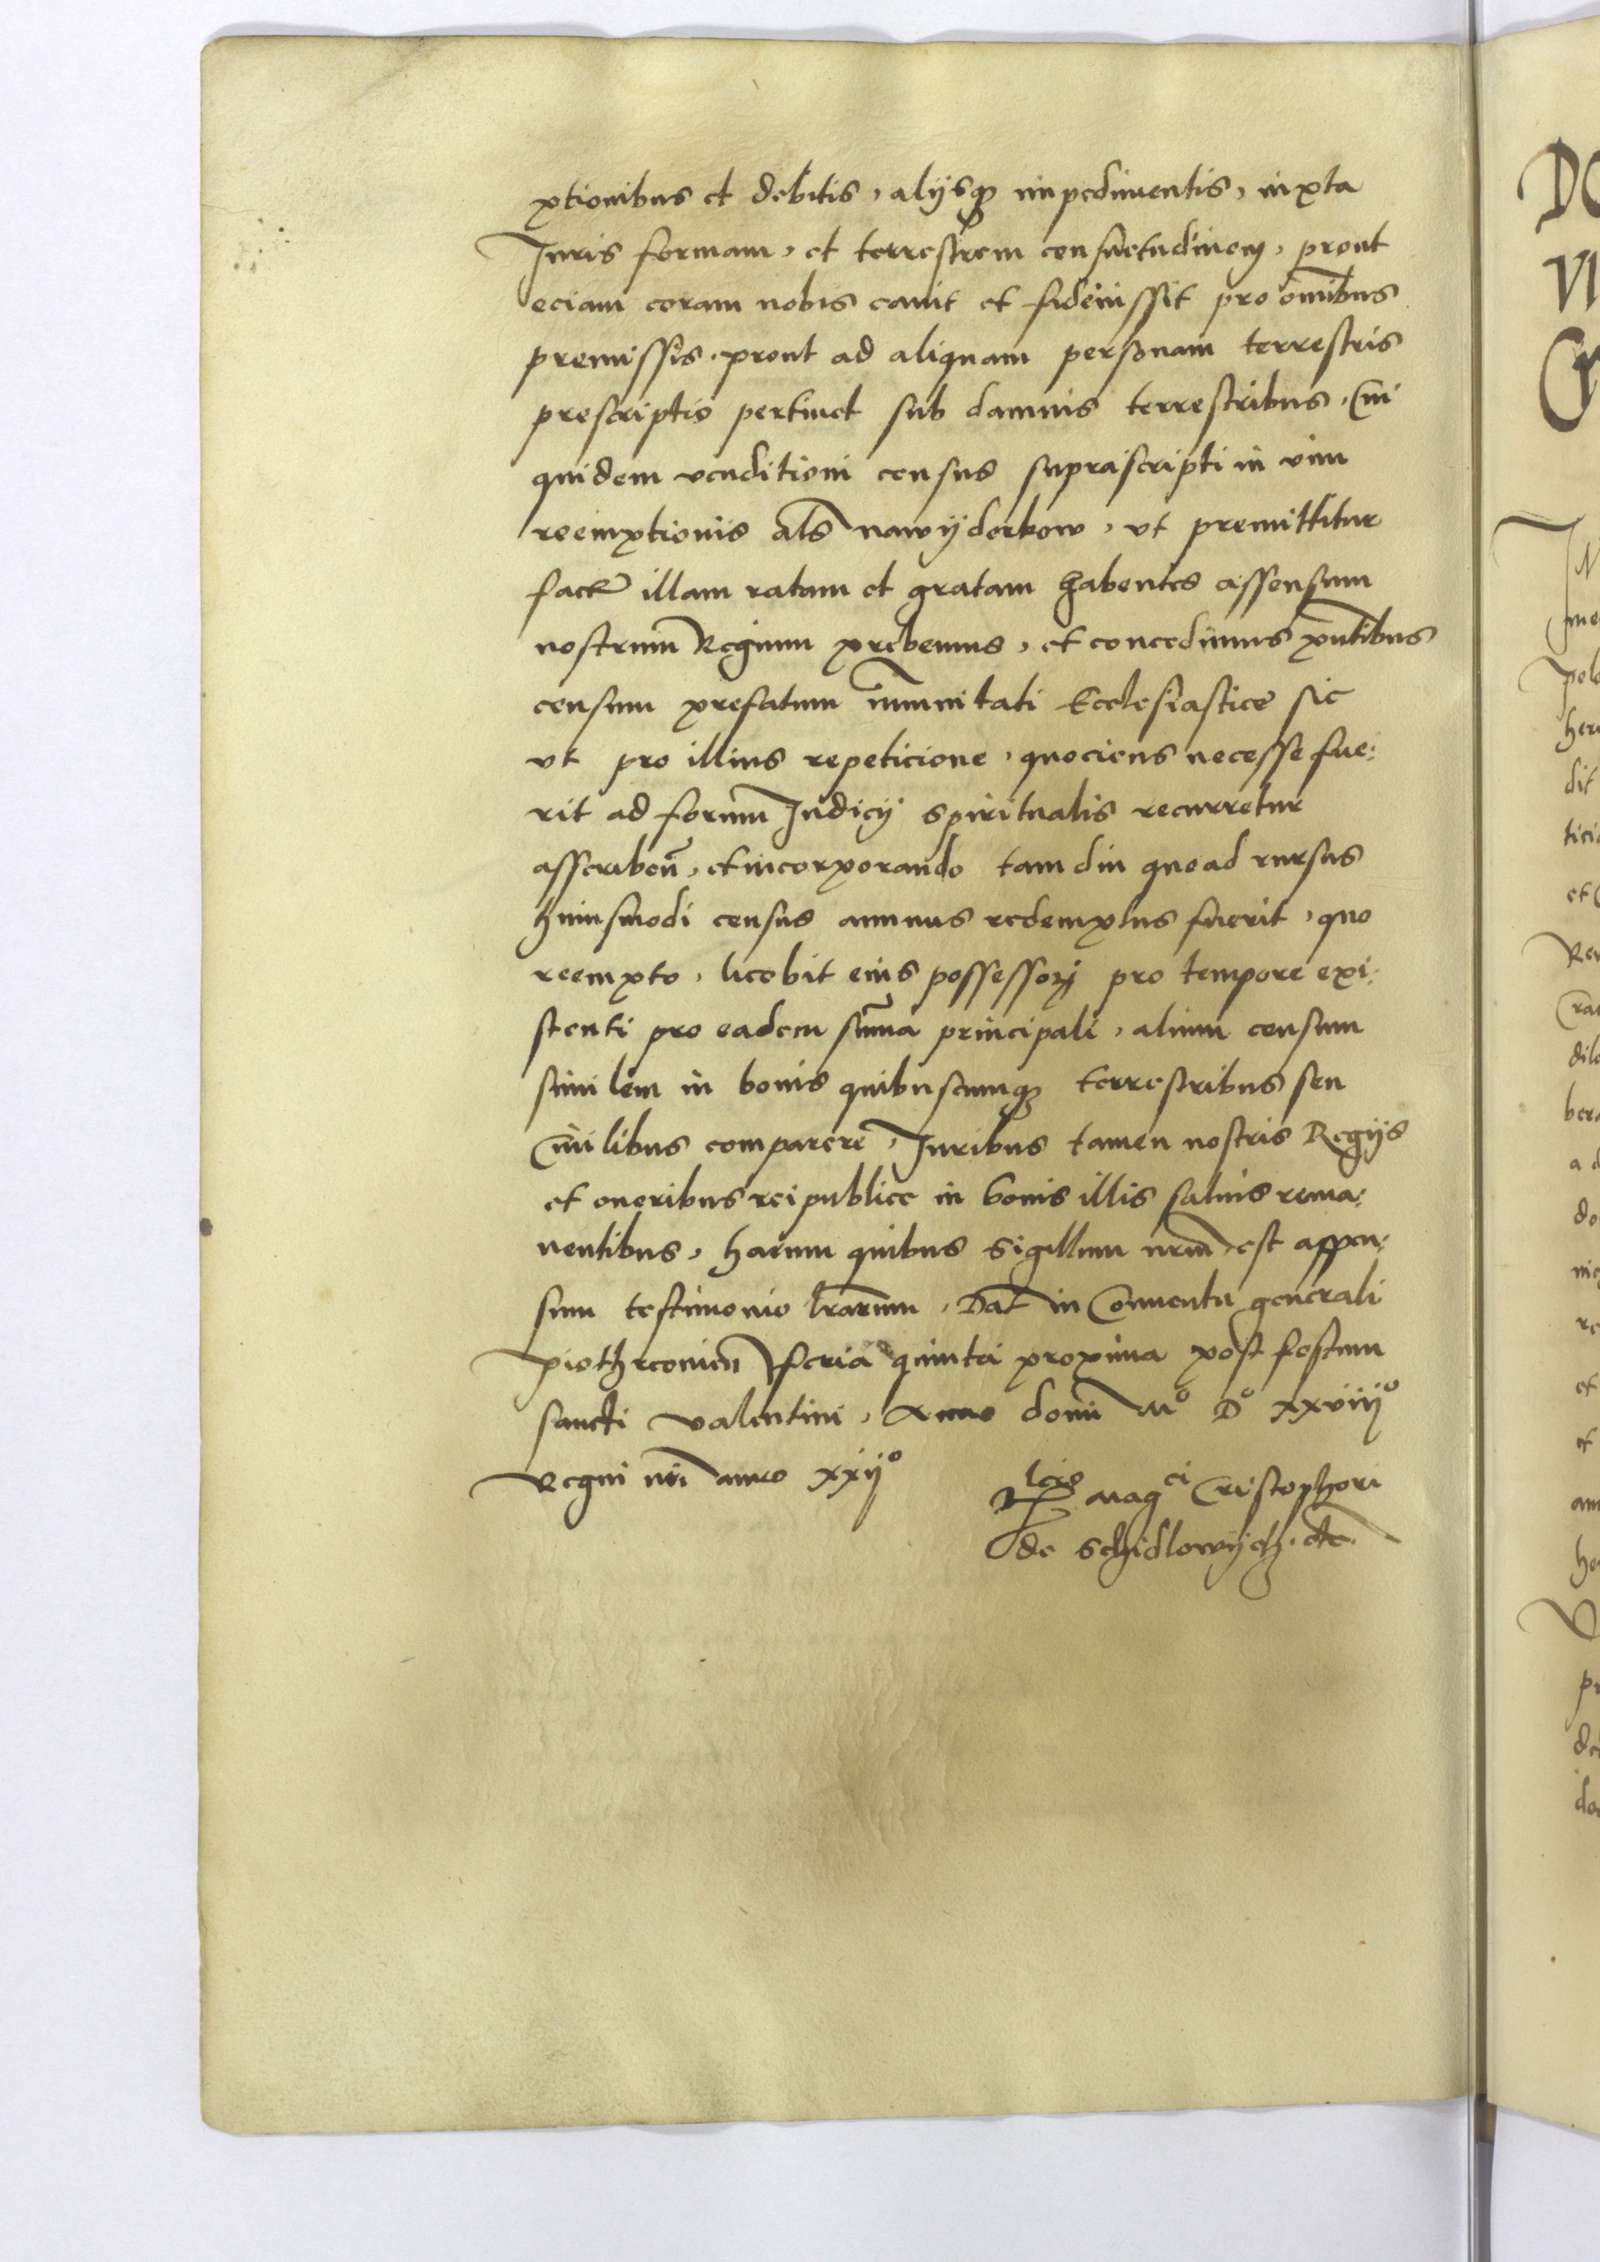 ptionibus et debitis, alijsq; impedimentis, iuxta
Iuris formam, et terrestrem consuetudinem, prout
eciam coram nobis cauit et fideiussit pro om̄ibus
premissis, prout ad aliquam personam terrestris
prescriptio pertinet sub damnis terrestribus, Cui
quidem venditioni census suprascripti in vim
reemptionis al̄s nawyderkow, vt premittitur
fact̄ illam ratam et gratam habentes assensum
nostrum Regium prebemus, et concedimus p̄ntibus
censum prefatum im̄unitati Ecclesiastice sic
vt pro illius repeticione, quociens necesse fue:
rit ad forum Iudicij spiritualis recurretur
asscriben̄, et incorporando tam diu quoad rursus
huiusmodi census annuus redemptus fuerit, quo
reempto, licebit eius possessori pro tempore exi:
stenti pro eadem sum̄a principali, alium censum
similem in bonis quibuscumq; terrestribus seu
Ciuilibus comparere, Iuribus tamen nostris Regijs
et oneribus reipublice in bonis illis saluis rema:
nentibus, harum quibus sigillum nr̄m est appen:
sum testimonio l̄rarum, Dat̄ in Conuentu generali
Piothrconien̄ feria quinta proxima post festum
sancti Valentini, Anno domī Mº Dº XXVIIIº
Regni nr̄i anno XXIJº
R͞elcio Mag^ci Cristophori
de Schidlowycz, etc.
DO
VI
IN
me
polo
her
dit
tici
et
Rev
Cra
dile
bera
a d
do
nic
re
et
et
ann
he
pr
de
do